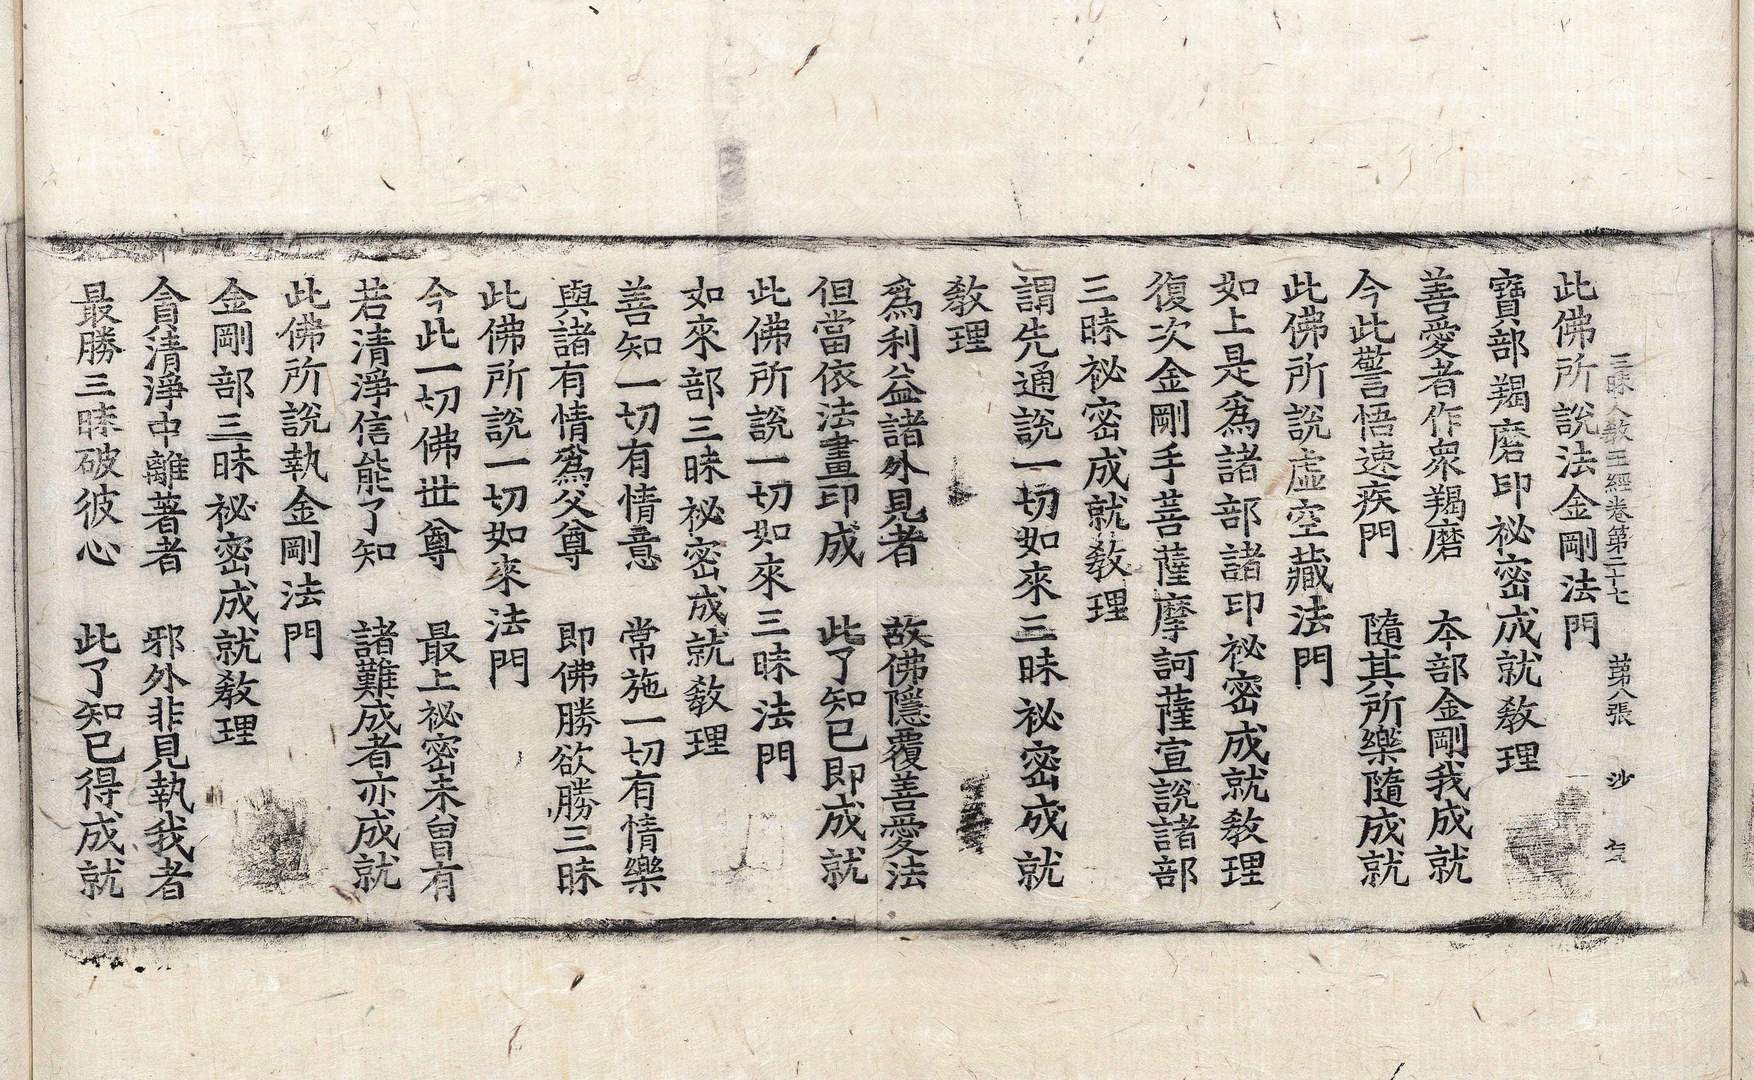 三昧大敎王經卷第二十七　第八張　沙
此佛所說法金剛法門
寶部羯磨印祕密成就敎理
善愛者作衆羯磨　本部金剛我成就
今此警悟速疾門　隨其所樂隨成就
此佛所說虛空藏法門
如上是爲諸部諸印祕密成就敎理
復次金剛手菩薩摩訶薩宣說諸部
三昧祕密成就敎理
謂先通說一切如來三昧祕密成就
敎理
爲利益諸外見者　故佛隱覆善愛法
但當依法畫印成　此了知已即成就
此佛所說一切如來三昧法門
如來部三昧祕密成就敎理
善知一切有情意　常施一切有情樂
與諸有情爲父尊　即佛勝欲勝三昧
此佛所說一切如來法門
今此一切佛世尊　最上祕密未曾有
若清淨信能了知　諸難成者亦成就
此佛所說執金剛法門
金剛部三昧祕密成就敎理
貪清淨中離著者　邪外非見執我者
最勝三昧破彼心　此了知已得成就